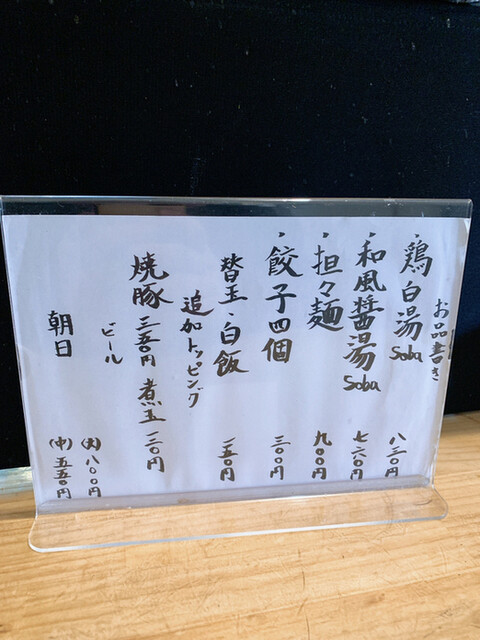 お品書き
・鶏白湯Soba 八三〇円
・和風醤湯Soba 七六〇円
・担々麺 九〇〇円
・餃子四個 三〇〇円
替玉・白飯 一五〇円
追加トッピング
焼豚 三五〇円 煮玉 一二〇円
ビール
朝日 (大)八〇〇円
(中)五五〇円